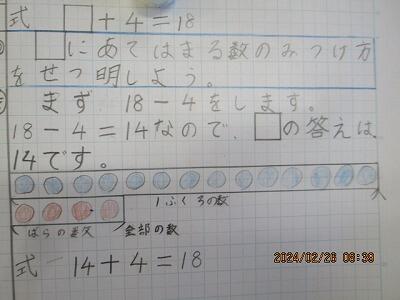 式 □+4=18
□にあてはまる数のみつけ方
をせつ明しよう。
まず 18-4をします。
18-4=14なので、□の答えは、
14です。
1ふくろの数
ばらの数 全部の数
式 14+4=18
2024/02/26 08:39